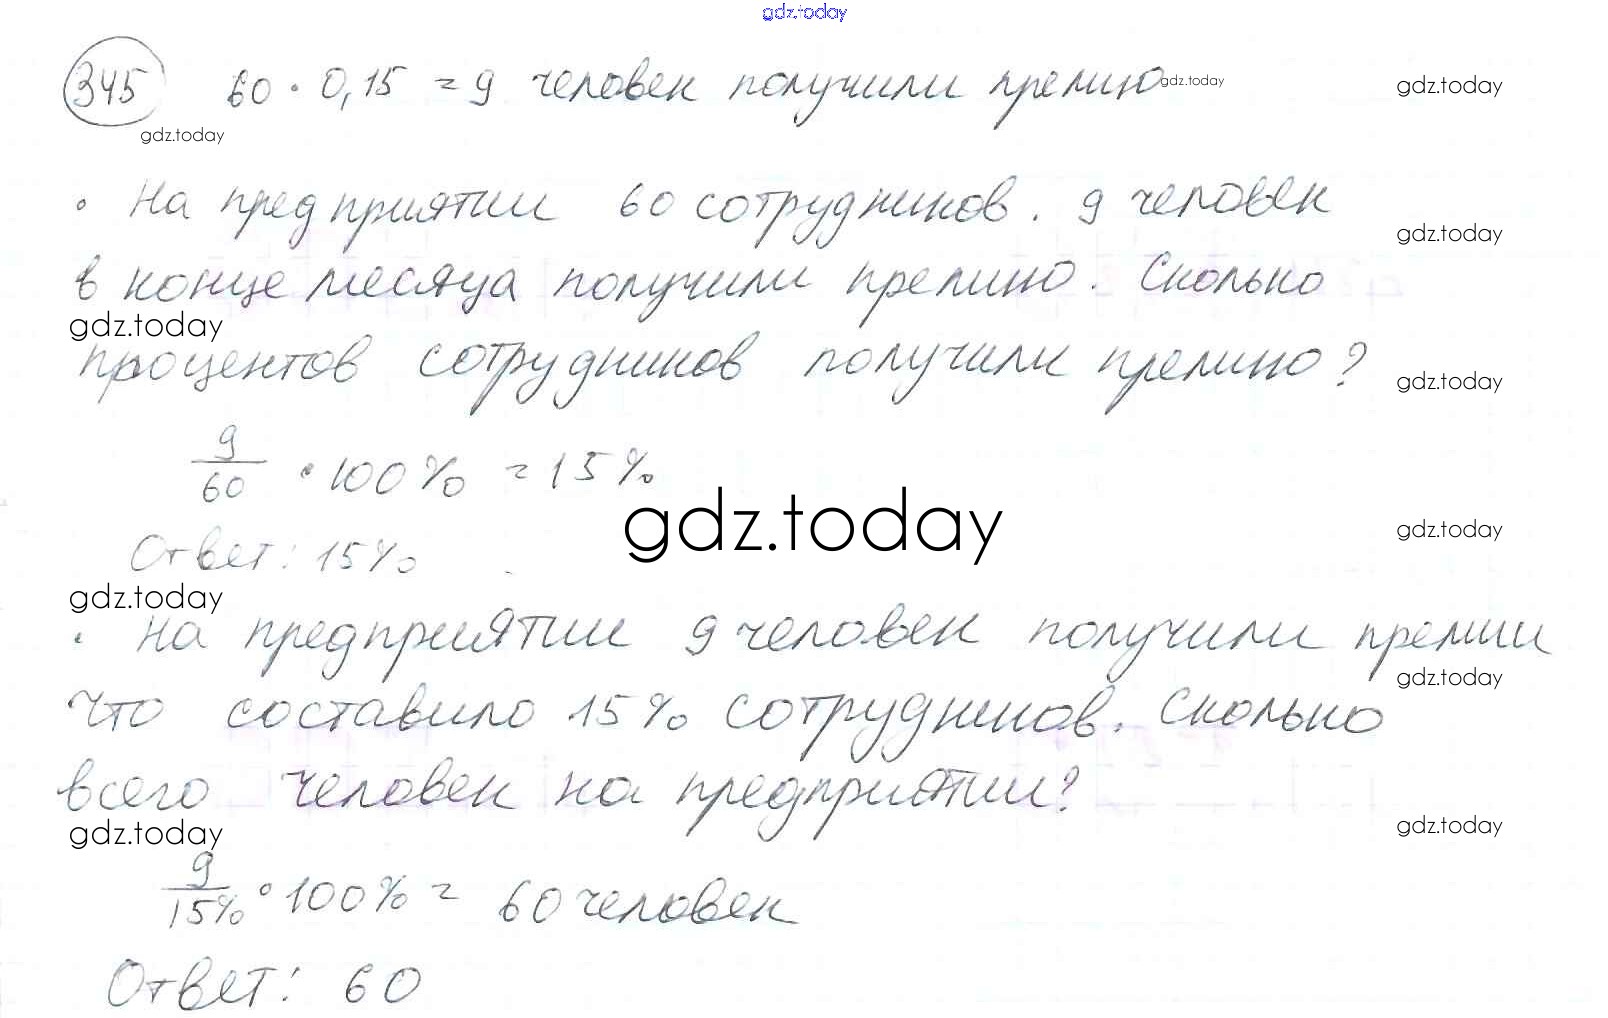 gdz.today
345 60 · 0,15 = 9 человек получили премию gdz.today gdz.today
gdz.today
• На предприятии 60 сотрудников. 9 человек
gdz.today
в конце месяца получили премию. Сколько
gdz.today
процентов сотрудников получили премию?
gdz.today
9/60 · 100% = 15%
gdz.today gdz.today
Ответ: 15%
gdz.today
• На предприятии 9 человек получили премии
gdz.today
что составило 15% сотрудников. Сколько
всего человек на предприятии?
gdz.today gdz.today
9/15% · 100% = 60 человек
Ответ: 60